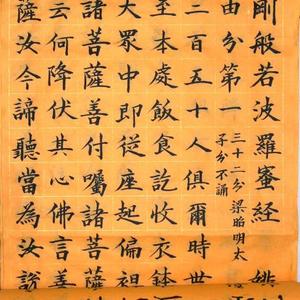 剛般若波羅蜜經 姚
由分第一
三十二分 梁昭明太
子分不誦
二百五十人俱爾時世
至本處飯食訖收衣鉢
大眾中即從座起偏袒
諸菩薩善付囑諸菩薩
云何降伏其心佛言善
薩汝今諦聽當為汝說